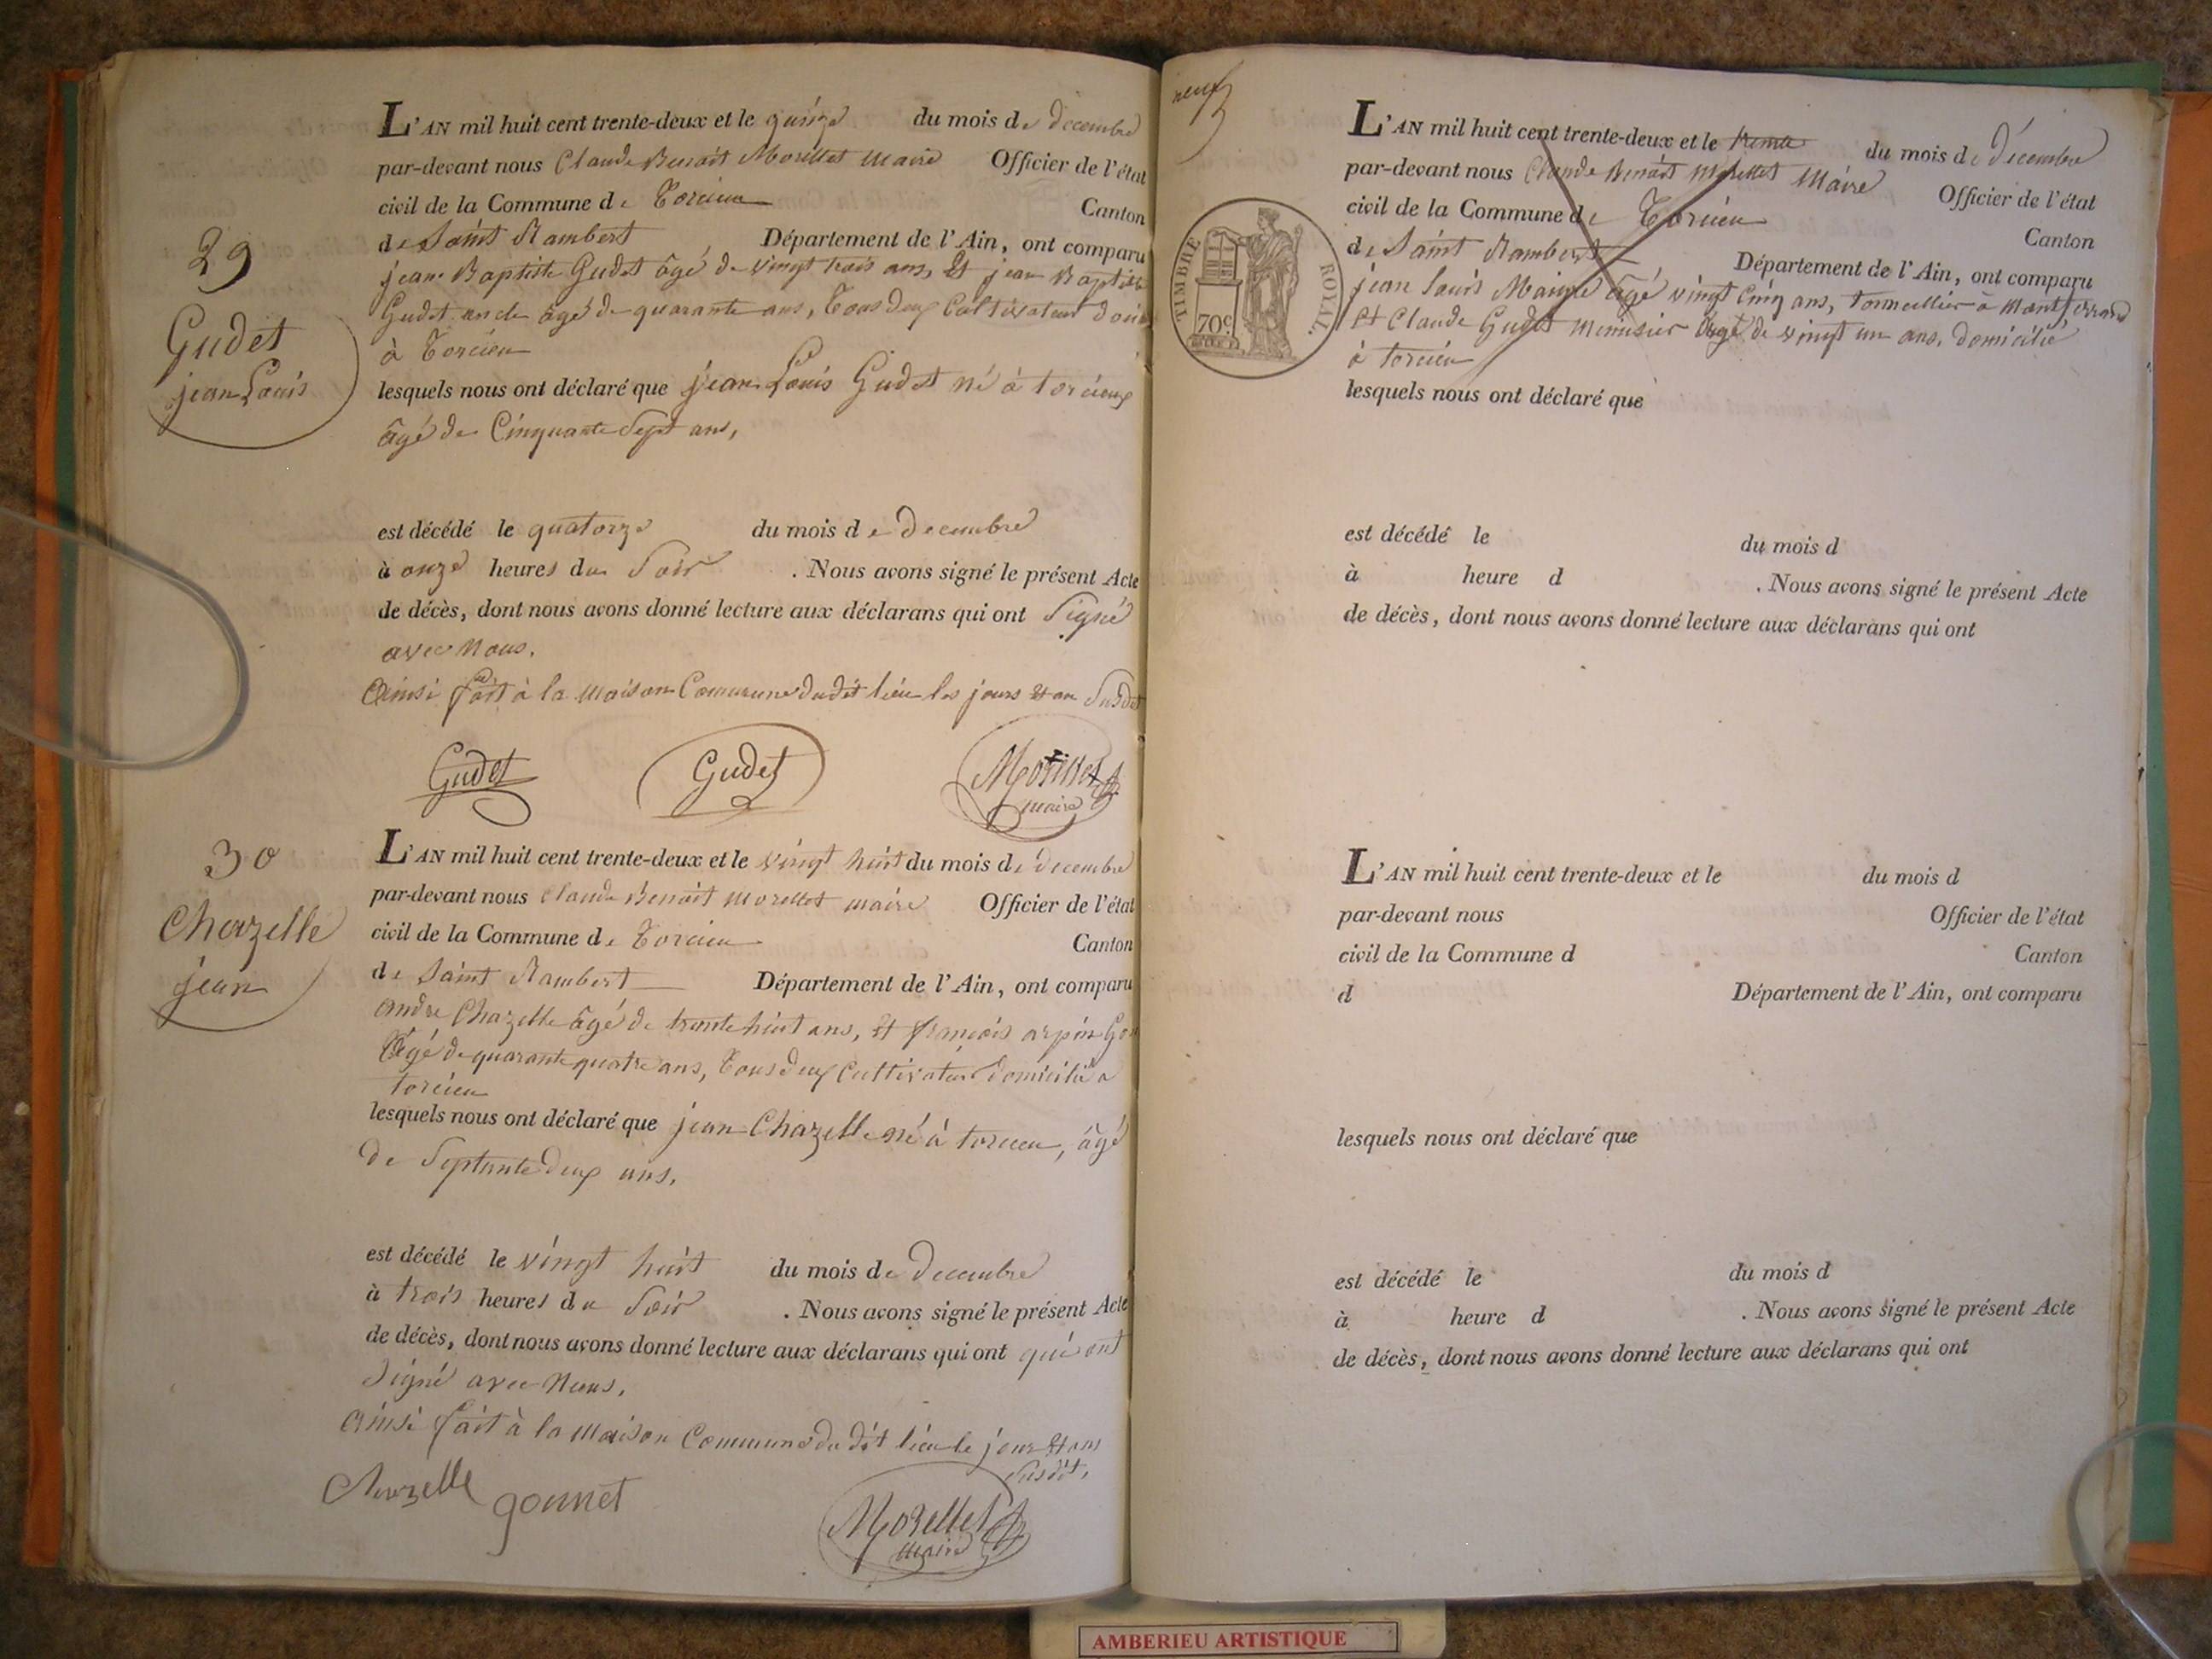 29
Gudet
jean Louis
L'AN mil huit cent trente-deux et le quinze du mois de decembre
par-devant nous Claude Benoit Morellet maire Officier de l'état
civil de la Commune de Torcieu Canton
de Saint Rambert Département de l'Ain, ont comparu
jean Baptiste Gudet âgé de vingt trois ans, et jean Baptiste
Gudet oncle âgé de quarante ans, Tous deux Cultivateur
à Torcieu
lesquels nous ont déclaré que jean Louis Gudet né à torcieux
âgé de Cinquante Sept ans,
est décédé le quatorze du mois de Decembre
à onze heures du Soir . Nous avons signé le présent Acte
de décès, dont nous avons donné lecture aux déclarans qui ont Signé
avec nous.
Ainsi fait à la maison Commune dudit lieu les jours et an Susdit
Gudet Gudet Morellet
maire
30
Chazelle
jean
L'AN mil huit cent trente-deux et le vingt huit du mois de decembre
par-devant nous Claude Benoit Morellet maire Officier de l'état
civil de la Commune de Torcieu Canton
de Saint Rambert Département de l'Ain, ont comparu
andre Chazelle âgé de trente huit ans, et françois arpin
Agé de quarante quatre ans, Tous deux Cultivateur domicilié a
torcieu
lesquels nous ont déclaré que jean Chazelle né à torcieu, âgé
de Septante deux ans,
est décédé le vingt huit du mois de Decembre
à trois heures du Soir . Nous avons signé le présent Acte
de décès, dont nous avons donné lecture aux déclarans qui ont qui ont
Signé avec Nous,
ainsi fait à la Maison Commune du dit lieu le jour et an
Susdit,
Chazelle gonnet Morellet
maire
neuf
TIMBRE ROYAL.
70c.
L'AN mil huit cent trente-deux et le trente du mois de Décembre
par-devant nous Claude Benoit Morellet Maire Officier de l'état
civil de la Commune de Torcieu Canton
de Saint Rambert Département de l'Ain, ont comparu
jean Louis âgé vingt Cinq ans, tonnellier à Montferrand
et Claude Gudet menuisier âgé de vingt un ans, domicilié
à torcieu
lesquels nous ont déclaré que
est décédé le du mois d
à heure d . Nous avons signé le présent Acte
de décès, dont nous avons donné lecture aux déclarans qui ont
L'AN mil huit cent trente-deux et le du mois d
par-devant nous Officier de l'état
civil de la Commune d Canton
d Département de l'Ain, ont comparu
lesquels nous ont déclaré que
est décédé le du mois d
à heure d . Nous avons signé le présent Acte
de décès, dont nous avons donné lecture aux déclarans qui ont
AMBERIEU ARTISTIQUE